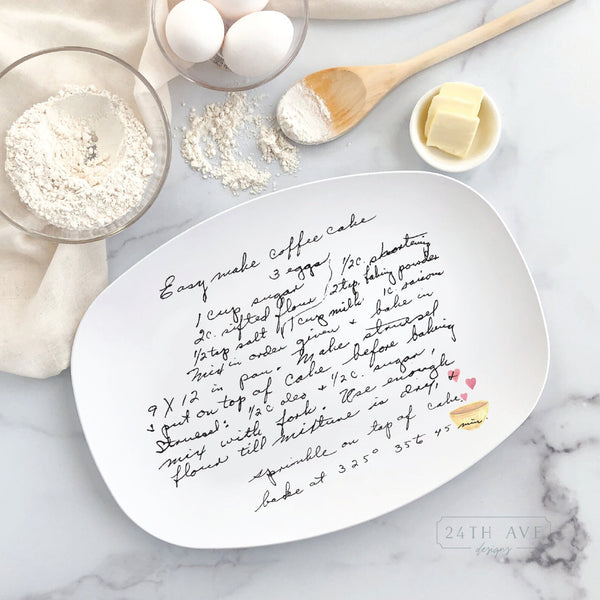 Easy make coffee cake
3 eggs
1 cup sugar 1/2 c. shortening
2c. sifted flour 2 tsp baking powder
1/2 tsp salt 1 cup milk 1c raisons
Mix in order given & bake in
9 X 12 in pan. Make struesel
& put on top of cake before baking
Struesel: 1/2c oleo + 1/2c. sugar,
mix with fork. Use enough
flour till mixture is dry, &
sprinkle on top of cake.
bake at 325° 35 to 45 min
24TH AVE
designs